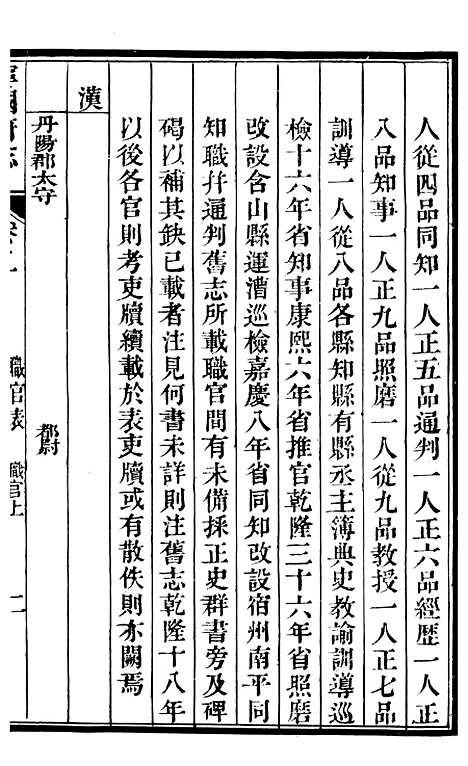 人從四品同知一人正五品通判一人正六品經歷一人正
八品知事一人正九品照磨一人從九品教授一人正七品
訓導一人從八品各縣知縣有縣丞主簿典史教諭訓導巡
檢十六年省知事康熙六年省推官乾隆三十六年省照磨
改設含山縣運漕巡檢嘉慶八年省同知改設宿州南平同
知職幷通判舊志所載職官間有未備採正史群書旁及碑
碣以補其缺已載者注見何書未詳則注舊志乾隆十八年
以後各官則考吏牘續載於表吏牘或有散佚則亦闕焉
漢
丹陽郡太守
都尉
職官表
職官上
二